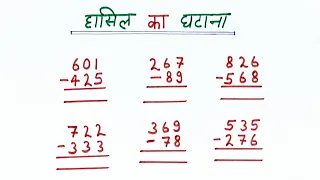 हासिल का घटाना
601 267 826
-425 -89 -568
722 369 535
-333 -78 -276